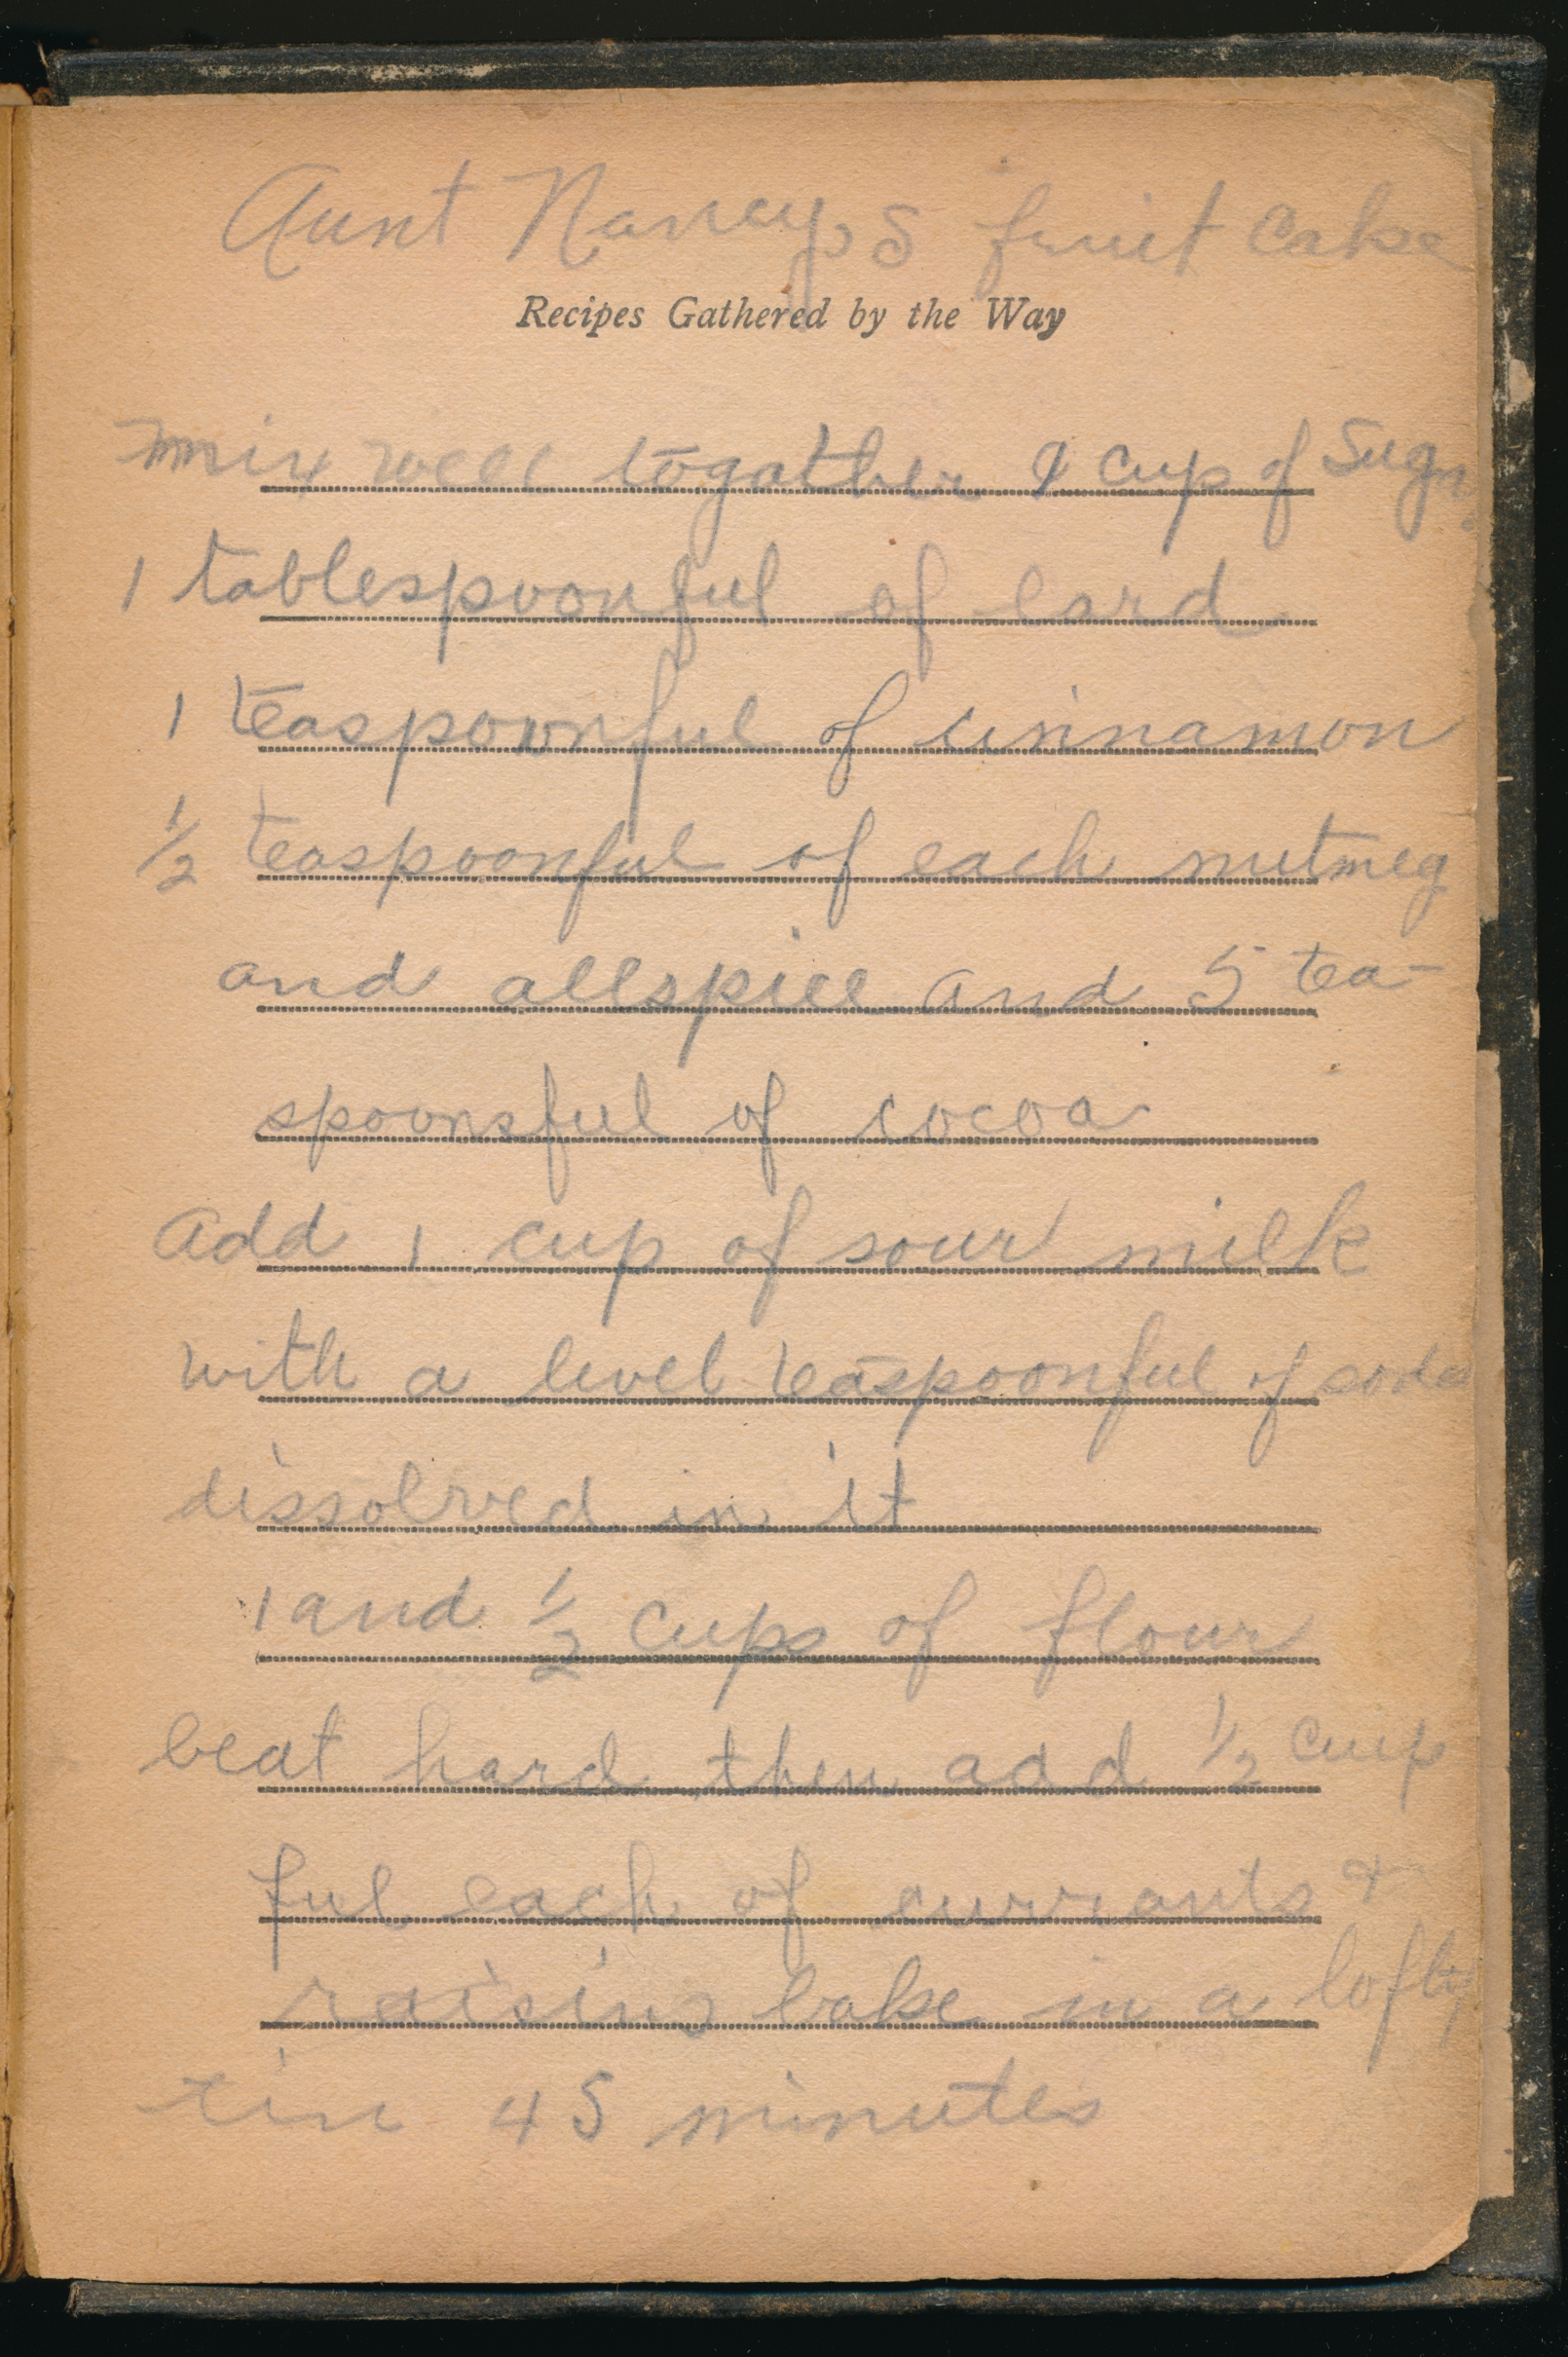 Aunt Nancys fruit Cake
Recipes Gathered by the Way
mix well togather 1 cup of Sugar
1 tablespoonful of lard
1 teaspoonful of cinnamon
1/2 teaspoonful of each nutmeg
and allspice and 5 tea-
spoonsful of cocoa
add 1 cup of sour milk
with a level teaspoonful of soda
dissolved in it
1 and 1/2 cups of flour
beat hard then add 1/2 cup
ful each of currants &
raisins bake in a lofty
tin 45 minutes